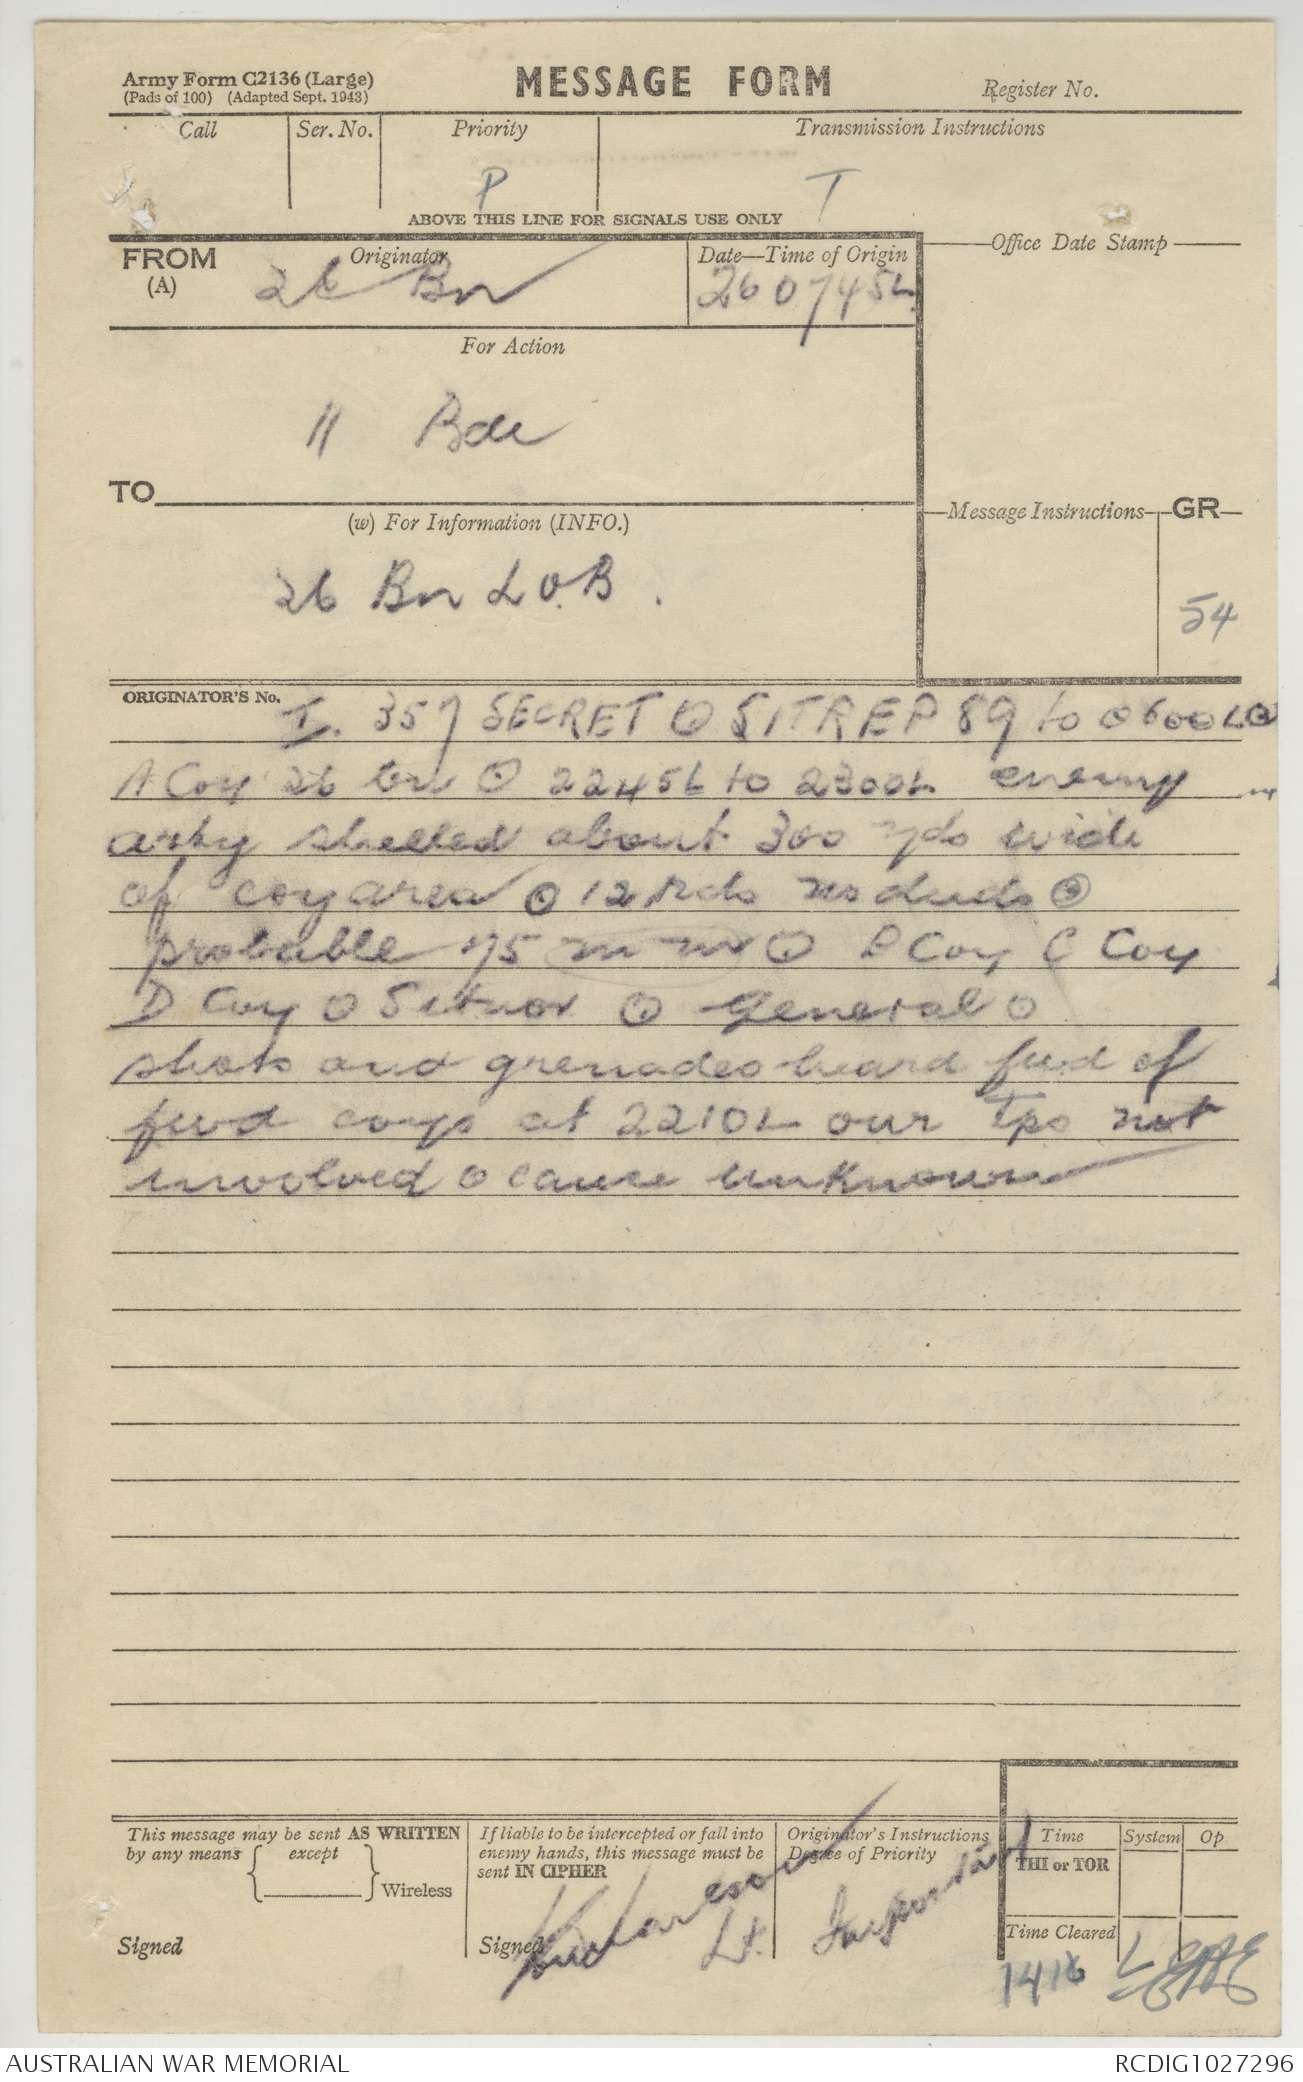 Army Form C2136 (Large)
(Pads of 100) (Adapted Sept. 1943)
MESSAGE FORM
Register No.
Call
Ser. No.
Priority
Transmission Instructions
P
T
ABOVE THIS LINE FOR SIGNALS USE ONLY
FROM
(A)
Originator
26 Bn
Date—Time of Origin
260745L
Office Date Stamp
For Action
11 Bde
TO
(w) For Information (INFO.)
26 Bn L.O.B.
Message Instructions
GR
54
ORIGINATOR'S No.
I. 357 SECRET ⊙ SITREP 89 to 0600L ⊙
A Coy 26 bn ⊙ 2245L to 2300L enemy
arty shelled about 300 yds wide
of coy area ⊙ 12 rds no duds ⊙
probable 75 m m ⊙ B Coy C Coy
D Coy ⊙ Sitnor ⊙ General ⊙
shots and grenades heard fwd of
fwd coys at 2210L our Tps not
involved ⊙ cause unknown
This message may be sent AS WRITTEN
by any means except
Wireless
Signed
If liable to be intercepted or fall into
enemy hands, this message must be
sent IN CIPHER
Signed
Lt.
Originator's Instructions
Degree of Priority
Important
Time
System
Op
THI or TOR
Time Cleared
1416
AUSTRALIAN WAR MEMORIAL
RCDIG1027296